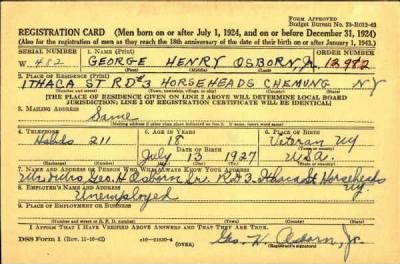 Form Approved
Budget Bureau No. 33-R012-43
REGISTRATION CARD—(Men born on or after July 1, 1924, and on or before December 31, 1924)
(Also for the registration of men as they reach the 18th anniversary of the date of their birth on or after January 1, 1943.)
SERIAL NUMBER 1. NAME (Print) ORDER NUMBER
W 482 GEORGE HENRY OSBORN, Jr. 12,982
(First) (Middle) (Last)
2. PLACE OF RESIDENCE (Print)
ITHACA ST RD#3 HORSEHEADS CHEMUNG NY
(Number and street) (Town, township, village, or city) (County) (State)
[THE PLACE OF RESIDENCE GIVEN ON LINE 2 ABOVE WILL DETERMINE LOCAL BOARD
JURISDICTION; LINE 2 OF REGISTRATION CERTIFICATE WILL BE IDENTICAL]
3. MAILING ADDRESS
Same
4. TELEPHONE 5. AGE IN YEARS 6. PLACE OF BIRTH
Hshds 211 18 Veteran NY
DATE OF BIRTH
July 13 1927 USA
7. NAME AND ADDRESS OF PERSON WHO WILL ALWAYS KNOW YOUR ADDRESS
Mr. & Mrs Geo. H Osborn Sr. RD3. Ithaca St Horseheads NY
8. EMPLOYER'S NAME AND ADDRESS
Unemployed
9. PLACE OF EMPLOYMENT OR BUSINESS
(Number and street or R. F. D. number) (Town) (County) (State)
I AFFIRM THAT I HAVE VERIFIED ABOVE ANSWERS AND THAT THEY ARE TRUE.
DSS Form 1 (Rev. 11-16-42) (OVER) Geo. H. Osborn, Jr.